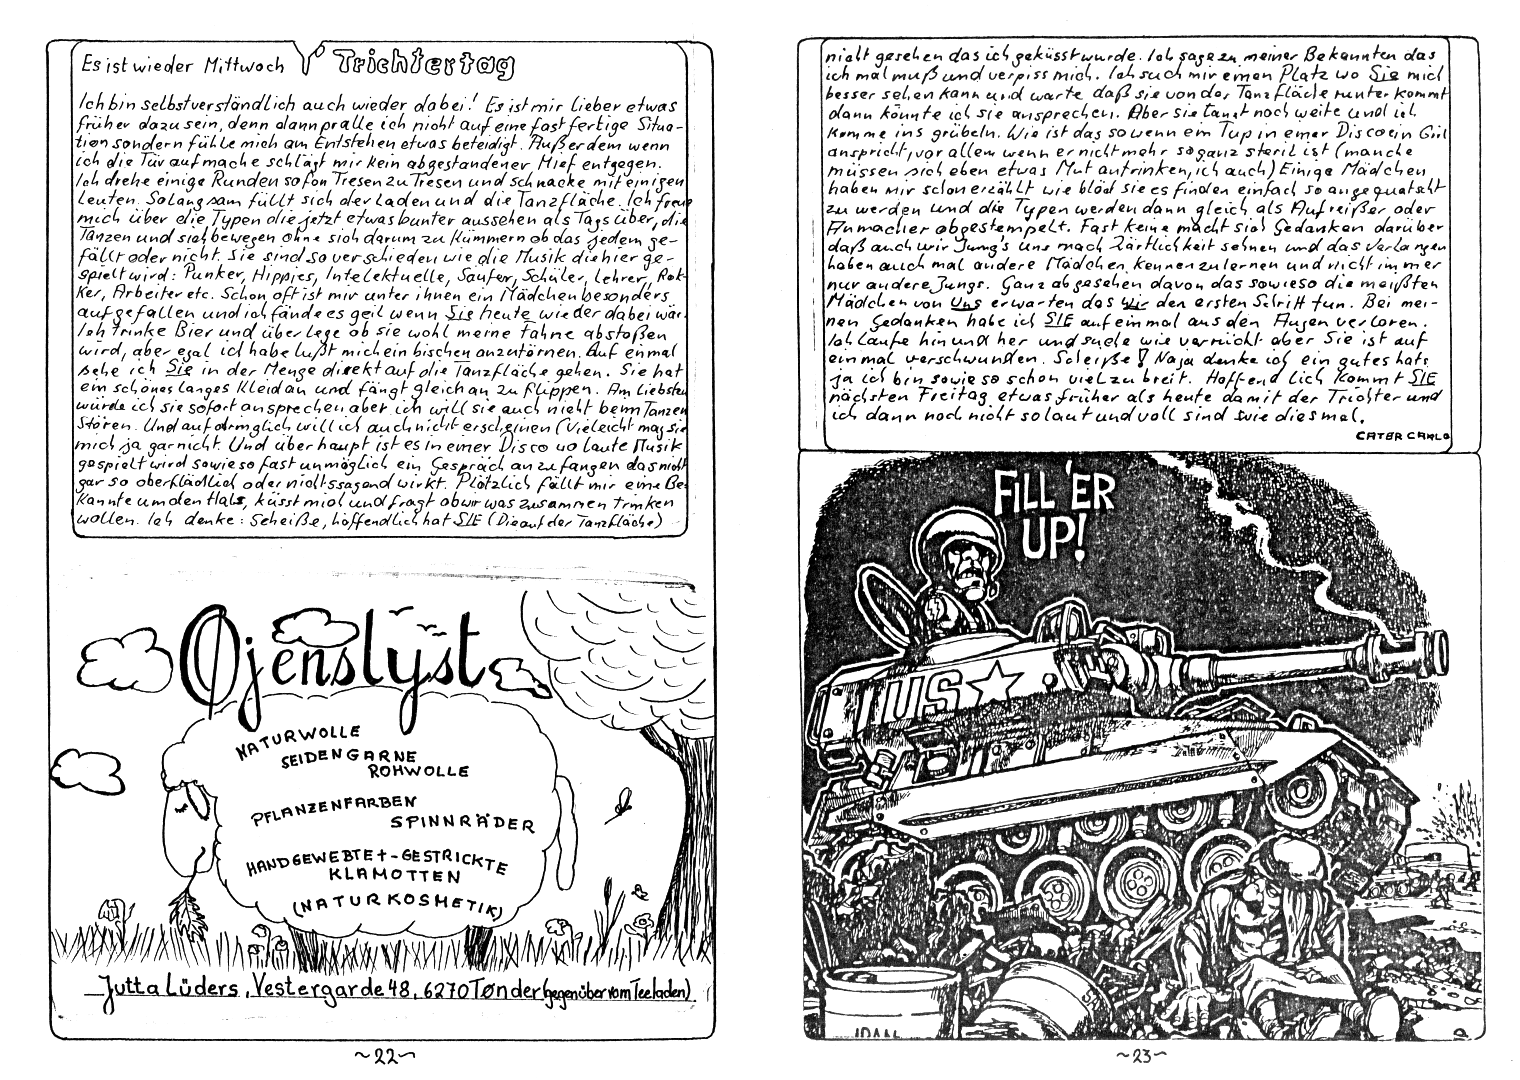 Es ist wieder Mittwoch Trichtertag
Ich bin selbstverständlich auch wieder dabei! Es ist mir lieber etwas
früher dazusein, denn dann pralle ich nicht auf eine fast fertige Situa-
tion sondern fühle mich am Entstehen etwas beteidigt. Außerdem wenn
ich die Tür aufmache schlägt mir kein abgestandener Mief entgegen.
Ich drehe einige Runden so fon Tresen zu Tresen und schnacke mit einigen
Leuten. Solangsam füllt sich der Laden und die Tanzfläche. Ich freue
mich über die Typen die jetzt etwas bunter aussehen als Tags über, die
Tanzen und sich bewegen ohne sich darum zu kümmern ob das jedem ge-
fällt oder nicht. Sie sind so verschieden wie die Musik die hier ge-
spielt wird: Punker, Hippies, Intelektuelle, Saufer, Schüler, Lehrer, Rok-
ker, Arbeiter etc. Schon oft ist mir unter ihnen ein Mädchen besonders
aufgefallen und ich fände es geil wenn Sie heute wieder dabei wär.
Ich trinke Bier und überlege ob sie wohl meine Fahne abstoßen
wird, aber egal ich habe lußt mich ein bischen anzutörnen. Auf enmal
sehe ich Sie in der Menge direkt auf die Tanzfläche gehen. Sie hat
ein schönes langes Kleid an und fängt gleich an zu flippen. Am Liebsten
würde ich sie sofort ansprechen aber ich will sie auch nicht beim Tanzen
stören. Und aufdringlich will ich auch nicht erscheinen (Vieleicht mag sie
mich ja gar nicht. Und überhaupt ist es in einer Disco wo laute Musik
gespielt wird sowieso fast unmöglich ein Gespräch anzufangen das nicht
gar so oberflächlich oder nichtssagend wirkt. Plötzlich fällt mir eine Be-
kannte um den Hals, küsst mich und fragt ob wir was zusammen trinken
wollen. Ich denke: Scheiße, hoffendlich hat SIE (Die auf der Tanzfläche)
Øjenslyst
NATURWOLLE
SEIDENGARNE
ROHWOLLE
PFLANZENFARBEN
SPINNRÄDER
HANDGEWEBTE+-GESTRICKTE
KLAMOTTEN
(NATURKOSMETIK)
Jutta Lüders, Vestergarde 48, 6270 Tønder (gegenüber vom Teeladen)
~22~
nicht gesehen das ich geküsst wurde. Ich sage zu meiner Bekannten das
ich mal muß und verpiss mich. Ich such mir einen Platz wo Sie mich
besser sehen kann und warte daß sie von der Tanzfläche runter kommt
dann könnte ich sie ansprechen. Aber sie tanzt noch weite und ich
komme ins grübeln. Wie ist das so wenn ein Typ in einer Disco ein Girl
anspricht, vor allem wenn er nicht mehr so ganz steril ist (manche
müssen sich eben etwas Mut antrinken, ich auch) Einige Mädchen
haben mir schon erzählt wie blöd sie es finden einfach so angequatscht
zu werden und die Typen werden dann gleich als Aufreißer oder
Anmacher abgestempelt. Fast keine macht sich Gedanken darüber
daß auch wir Jung's uns nach Zärtlichkeit sehnen und das verlangen
haben auch mal andere Mädchen kennen zu lernen und nicht immer
nur andere Jungs. Ganz abgesehen davon das sowieso die meißten
Mädchen von Uns erwarten das wir den ersten Schritt tun. Bei mei-
nen Gedanken habe ich SIE auf einmal aus den Augen verloren.
Ich laufe hin und her und suche wie verrückt aber Sie ist auf
einmal verschwunden. Scheiße! Naja denke ich ein gutes hats
ja ich bin sowieso schon viel zu breit. Hoffend lich kommt SIE
nächsten Freitag etwas früher als heute damit der Trichter und
ich dann noch nicht so laut und voll sind wie dies mal.
CATER CARLO
FILL 'ER
UP!
US
~23~